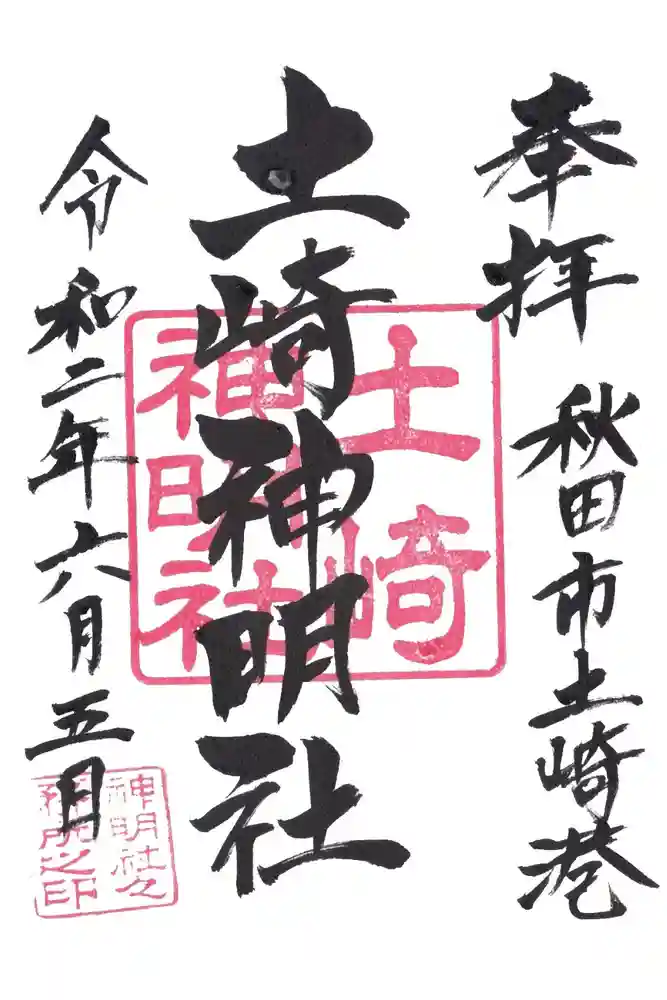 奉拝 秋田市土崎港
土崎神明社
令和二年六月五月
土崎
神明社
神明社
務所之印